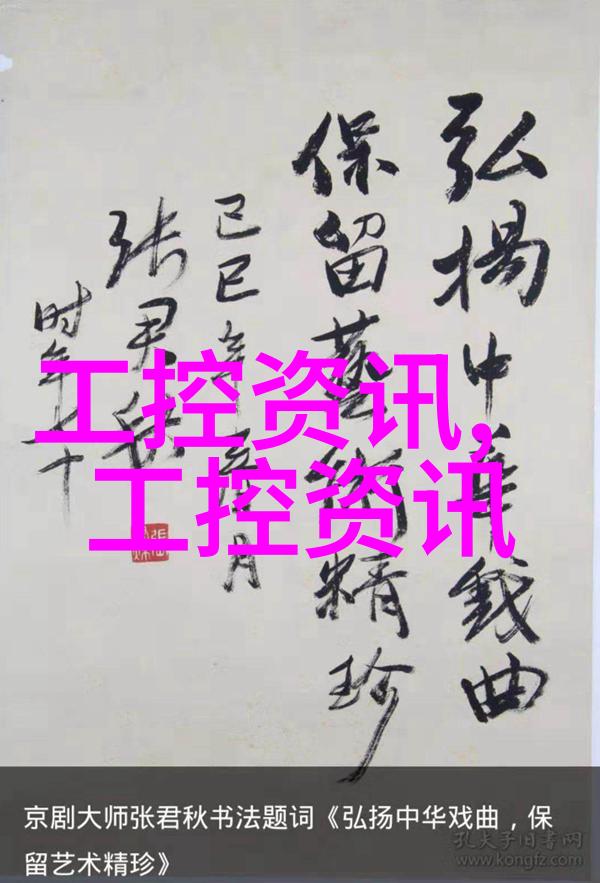 弘揚中華戲曲
保留藝術精珍
己巳年月
张君秋
时年七十
工控资讯,
工控资讯
京剧大师张君秋书法题词《弘扬中华戏曲，保
留艺术精珍》
孔夫子旧书网
www.kongfz.com